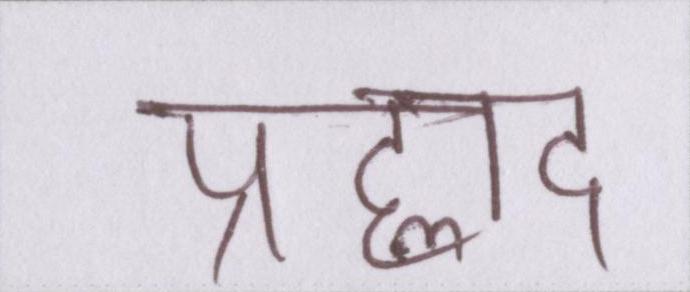 प्रह्लाद